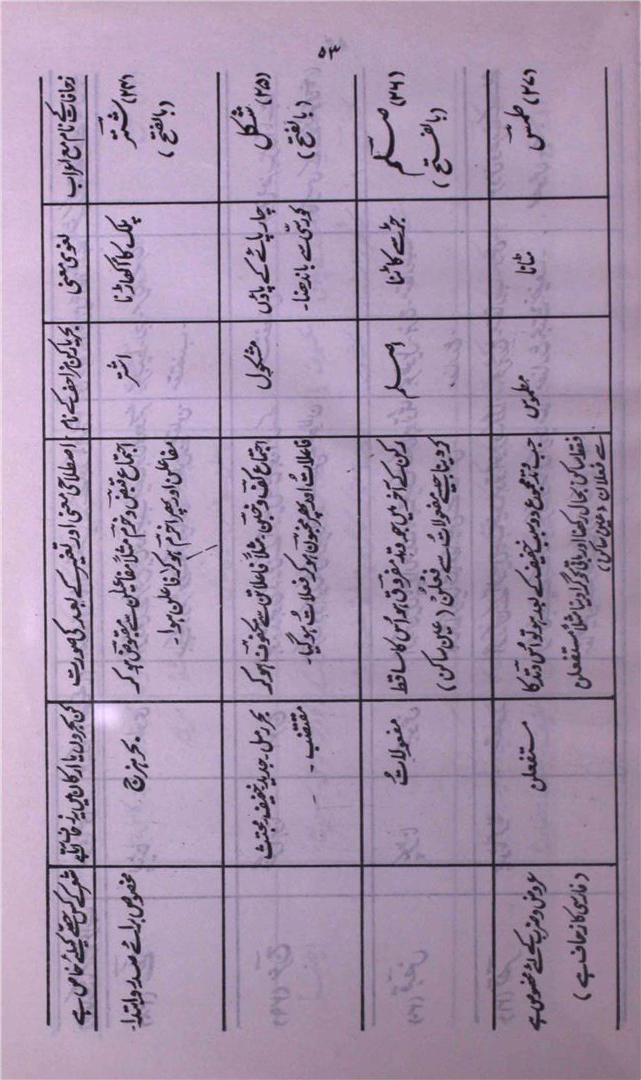 ۵۳
زحافات کے نام مع اعراب
لغوی معنی
بحر یا رکن مزاحف کے نام
اصطلاحی معنی اور تغیر کے بعد کی صورت
کن بحروں یا ارکان میں یہ زحاف آتا ہے
شعر کے کس حصے کیلئے خاص ہے
(۲۴) شتر
(بالفتح)
پلک کا اکھاڑنا
اشتر
اجتماع قبض و خرم مثلاً مفاعیلن سے مقبوض ہو کر
مفاعلن اور پھر اخرم ہو کر فاعلن ہوا۔
بحر ہزج
مخصوص برائے صدر و ابتدا۔
(۲۵) شکل
(بالفتح)
چار پائے کے پاؤں
کو رسی سے باندھنا۔
مشکول
اجتماع کف و خبن، مثلاً فاعلاتن سے مکفوف ہو کر
فاعلات اور پھر مخبون ہو کر فعلات ہو گیا۔
بحر رمل۔ جدید، خفیف، مجتث
مقتضب۔
(۲۶) صلم
(بالفتح)
جڑ سے کاٹنا
اصلم
رکن کے آخر میں جو وتد مفروق ہو اُس کا ساقط
کر دینا جیسے مفعولات سے فعلن (عین ساکن)
مفعولات
(۲۷) طمس
مٹانا
مطموس
جب وتد مجموع دو سبب خفیف کے بعد ہو تو اُس وتد کا
فقط ساکن بحال رکھنا اور باقی کو گرا دینا مثلاً مستفعلن
سے فعلان (عین ساکن)
مستفعلن
عروض و ضرب کے لئے مخصوص ہے
(فارسی کا زحاف ہے)